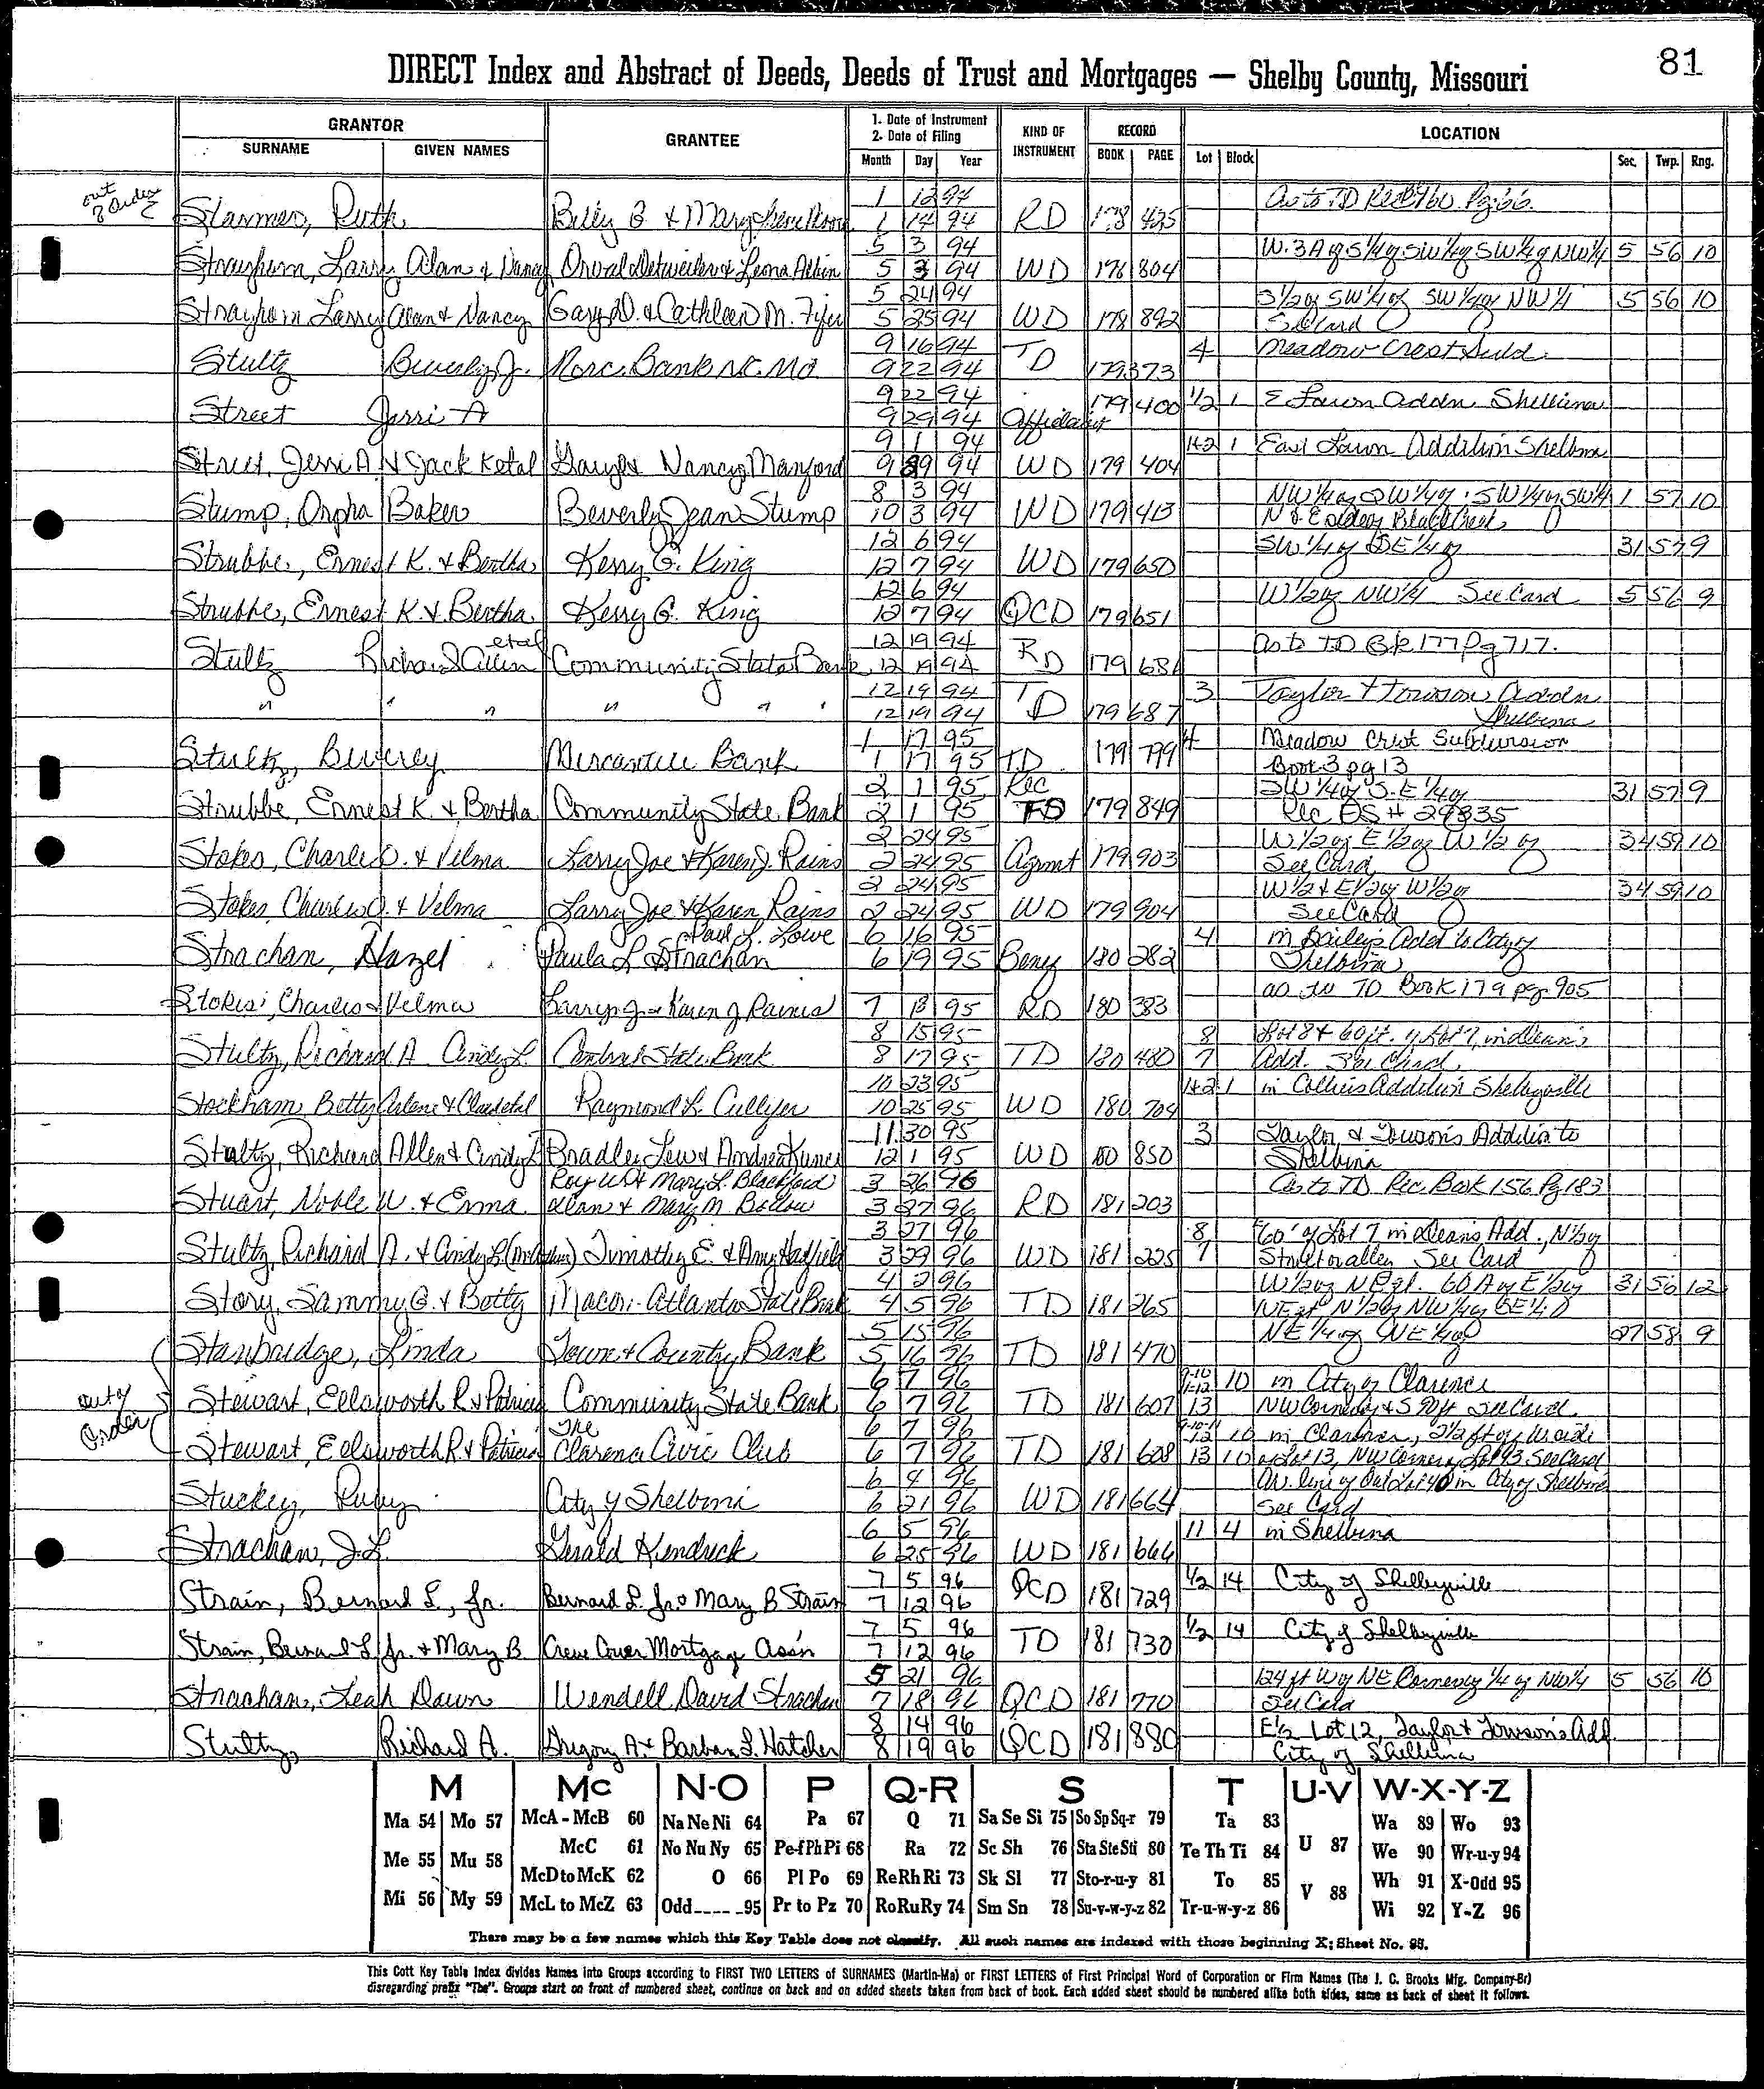 81
DIRECT Index and Abstract of Deeds, Deeds of Trust and Mortgages — Shelby County, Missouri
GRANTOR GRANTEE 1. Date of Instrument 2. Date of Filing KIND OF INSTRUMENT RECORD LOCATION
SURNAME GIVEN NAMES Month Day Year BOOK PAGE Lot Block Sec. Twp. Rng.
out
1 12 94
Starmer, Ruth Billy G & Mary 1 14 94 RD 178 425 As to TD
5 3 94 W. 3A of S 1/4 of SW 1/4 of SW 1/4 of NW 1/4 5 56 10
Strayhorn, Larry Alan & Nancy Orval Detweiler & Leona 5 3 94 WD 178 804
5 24 94 S 1/2 of SW 1/4 of SW 1/4 of NW 1/4 5 56 10
Strayhorn Larry Alan & Nancy Gary D. & Cathleen M. 5 25 94 WD 178 892 See Card
9 16 94 4 Meadow Crest Subd.
Stultz Beverly J. Merc. Bank N.C. MO 9 22 94 TD 179 373
9 22 94 179 400 1/2 1 E Lawn Addn Shelbina
Street Jerri A 9 29 94 Affidavit
9 1 94 1+2 1 East Lawn Addition Shelbina
Street, Jerri A & Jack Ketal & Nancy Manford 9 29 94 WD 179 404
8 3 94 NW 1/4 of SW 1/4 of SW 1/4 of SW 1/4 1 57 10
Stump, Orpha Baker Beverly Jean Stump 10 3 94 WD 179 413 N & E Black Creek
12 6 94 SW 1/4 of SE 1/4 of 31 57 9
Strubbe, Ernest K. & Bertha Kerry G. King 12 7 94 WD 179 650
12 6 94 W 1/2 of NW 1/4 See Card 5 56 9
Strubbe, Ernest K & Bertha Kerry G. King 12 7 94 QCD 179 651
etal 12 19 94 RD As to TD Bk 177 Pg 717.
Stultz Richard Allen Community State Bank 12 19 94 179 686
12 19 94 3 Taylor & Towson Addn
" " " " " " 12 19 94 TD 179 687 Shelbina
1 17 95 4 Meadow Crest Subdivision
Stultz, Beverly Mercantile Bank 1 17 95 TD 179 799 Book 3 pg 13
2 1 95 Rec SW 1/4 of S.E 1/4 of 31 57 9
Strubbe, Ernest K. & Bertha Community State Bank 2 1 95 TD 179 849 Rec DS # 29335
2 24 95 W 1/2 of E 1/2 of W 1/2 of 34 59 10
Stokes, Charles O. & Velma Larry Joe & Karen J. Rains 2 24 95 Agrmt 179 903 See Card
2 24 95 W 1/2 & E 1/2 of W 1/2 of 34 59 10
Stokes Charles O. & Velma Larry Joe & Karen Rains 2 24 95 WD 179 904 See Card
Paul L. Lowe 6 16 95 4 in Bailey's Add to City of
Strachan, Hazel Paula L Strachan 6 19 95 Beny 180 282 Shelbina
as to TD Book 179 pg 905
Stokes, Charles & Velma Larry J & Karen J Rains 7 13 95 RD 180 383
8 15 95 8 Lot 8 & 60 ft. of Lot 7, in Dean's
Stultz, Richard A Cindy L Central State Bank 8 17 95 TD 180 480 7 Add. See Card
10 23 95 1+2 1 in Colliers Addition Shelbyville
Stockham Betty Arlene & Claud etal Raymond L. Cullifer 10 25 95 WD 180 704
11 30 95 3 Taylor & Towson's Addition to
Stultz, Richard Allen & Cindy L Bradley Lew & Andrea Kunce 12 1 95 WD 180 850 Shelbina
Roy W & Mary L. Blackford 3 26 96 As to TD Rec. Book 156 Pg 183
Stuart, Noble W. & Erma Alan & Mary M. 3 27 96 RD 181 203
3 27 96 8 60' of Lot 7 in Dean's Add., N 1/2 of
Stultz, Richard A. & Cindy L Timothy E. & Amy Hatfield 3 29 96 WD 181 225 7 Street or alley See Card
4 2 96 W 1/2 of N E 60 A of E 1/2 of 31 56 12
Story, Sammy G. & Betty Macon-Atlanta State Bank 4 5 96 TD 181 265 NE N 1/2 of NW 1/4 of SE 1/4
5 15 96 NE 1/4 of NE 1/4 of 27 58 9
Stanbridge, Linda Town & Country Bank 5 16 96 TD 181 470
out of
Order
6 7 96 9-10 11-12 10 in City of Clarence
Stewart, Ellsworth R & Patricia Community State Bank 6 7 96 TD 181 607 13 NW Corner & S 90 ft See Card.
The 6 7 96 9-10-11 12 10 in Clarence, 2 1/2 ft of W side
Stewart, Ellsworth R. & Patricia Clarence Civic Club 6 7 96 TD 181 608 13 10 of Lot 13, NW Corner of Lot 93 See Card
6 4 96 line of Outlot 40 in City of Shelbina
Stuckey, Ruby City of Shelbina 6 21 96 WD 181 664 See Card
6 5 96 11 4 in Shelbina
Strachan, J.L. Gerald Kendrick 6 25 96 WD 181 666
7 5 96 1/2 14 City of Shelbyville
Strain, Bernard L, Jr. Bernard L. Jr. & Mary B Strain 7 12 96 QCD 181 729
7 5 96 1/2 14 City of Shelbyville
Strain, Bernard L Jr. & Mary B Creve Coeur Mortgage Ass'n 7 12 96 TD 181 730
5 21 96 124 ft W of NE Corner of 1/4 of NW 1/4 5 56 10
Strachan, Leah Dawn Wendell David Strachan 7 18 96 QCD 181 770 See Card
8 14 96 E 1/2 Lot 12, Taylor & Towson's Add
Stultz, Richard A. Gregory A. & Barbara L. Hatcher 8 19 96 QCD 181 880 City of Shelbina
M Mc N-O P Q-R S T U-V W-X-Y-Z
Ma 54 Mo 57 McA - McB 60 Na Ne Ni 64 Pa 67 Q 71 Sa Se Si 75 So Sp Sq-r 79 Ta 83 Wa 89 Wo 93
McC 61 No Nu Ny 65 Pe-f Ph Pi 68 Ra 72 Sc Sh 76 Sta Ste Sti 80 Te Th Ti 84 U 87 We 90 Wr-u-y 94
Me 55 Mu 58 McD to McK 62 O 66 Pl Po 69 Re Rh Ri 73 Sk Sl 77 Sto-r-u-y 81 To 85 Wh 91 X-Odd 95
Mi 56 My 59 McL to McZ 63 Odd____ 95 Pr to Pz 70 Ro Ru Ry 74 Sm Sn 78 Su-v-w-y-z 82 Tr-u-w-y-z 86 V 88 Wi 92 Y-Z 96
There may be a few names which this Key Table does not classify. All such names are indexed with those beginning X; Sheet No. 95.
This Cott Key Table Index divides Names into Groups according to FIRST TWO LETTERS of SURNAMES (Martin-Ma) or FIRST LETTERS of First Principal Word of Corporation or Firm Names (The J. C. Brooks Mfg. Company-Br)
disregarding prefix "The". Groups start on front of numbered sheet, continue on back and on added sheets taken from back of book. Each added sheet should be numbered alike both sides, same as back of sheet it follows.